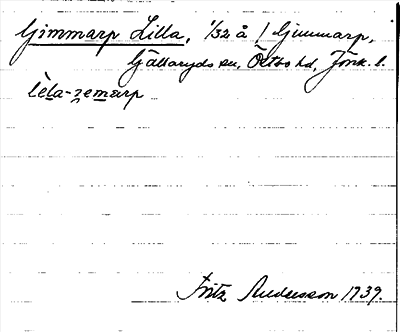 Gimmarp Lilla, 1/32 å 1 Gimmarp,
Gällaryds sn, Östbo hd, Jönk. l.
lɛ̀la-ʒemarp
Fritz Andersson 1939.